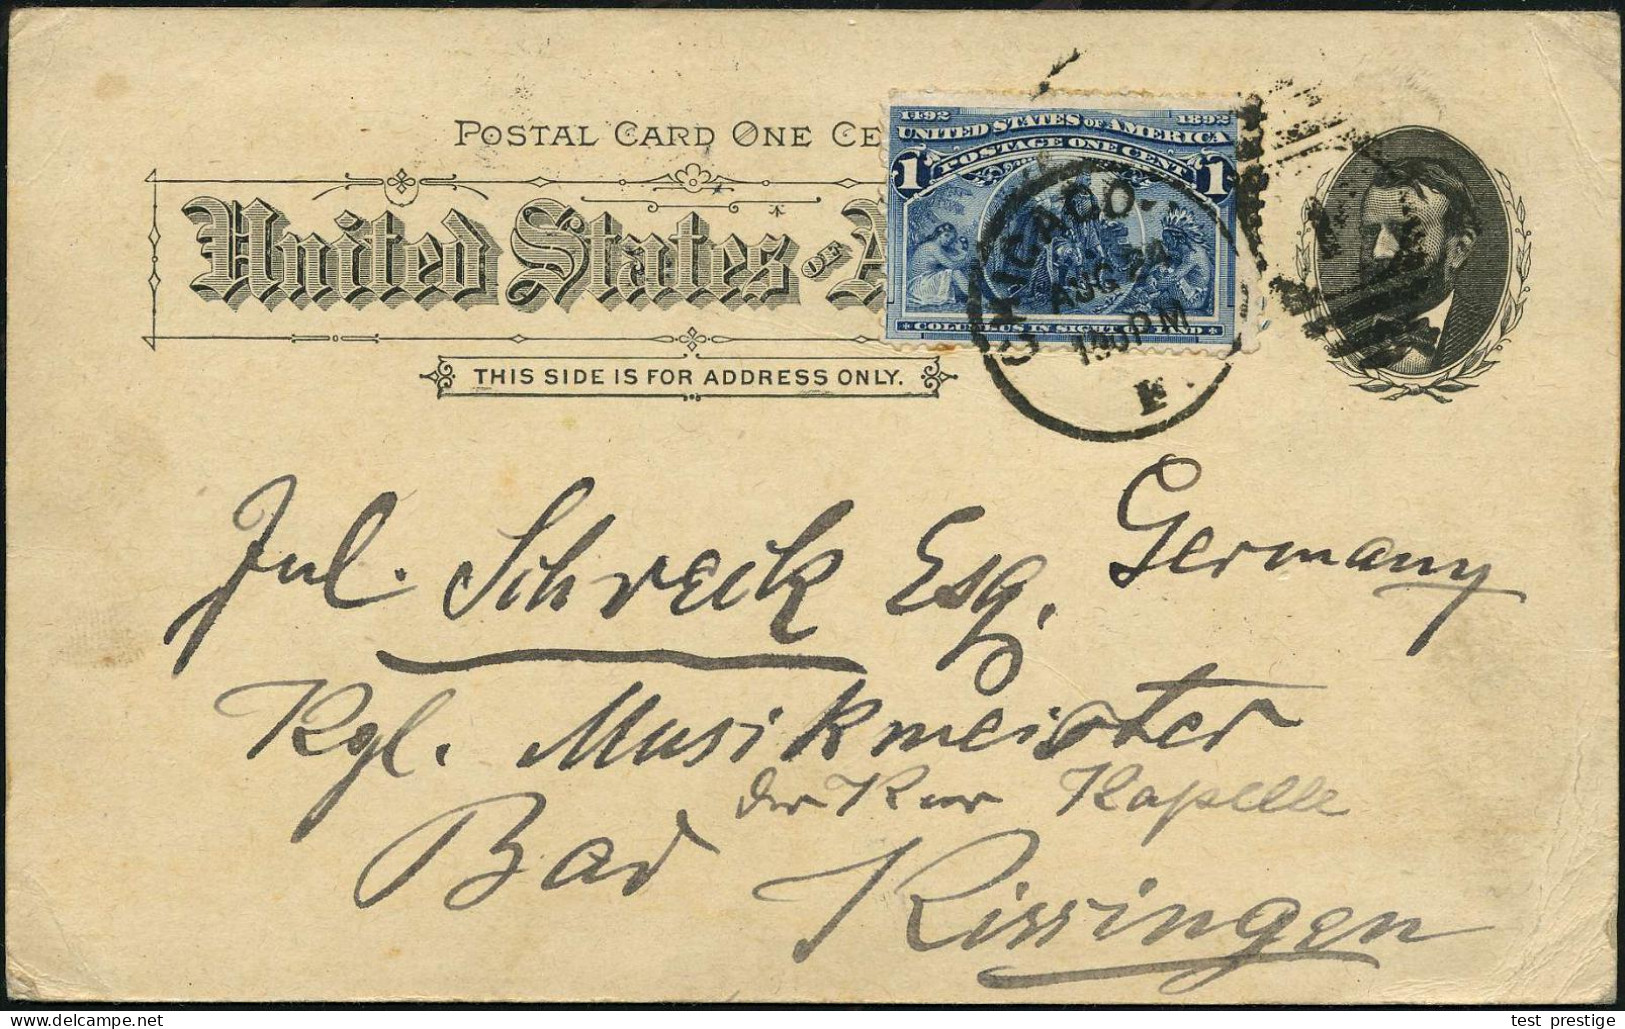 POSTAL CARD ONE CE
1492 1892
UNITED STATES OF AMERICA
1 POSTAGE ONE CENT 1
United States OF A
COLUMBUS IN SIGHT OF LAND
CHICAGO
AUG 24
PM
F
THIS SIDE IS FOR ADDRESS ONLY.
Jul. Schreck Esq. Germany
Kgl. Musikmeister
der Kur Kapelle
Bad Kissingen
test_prestige